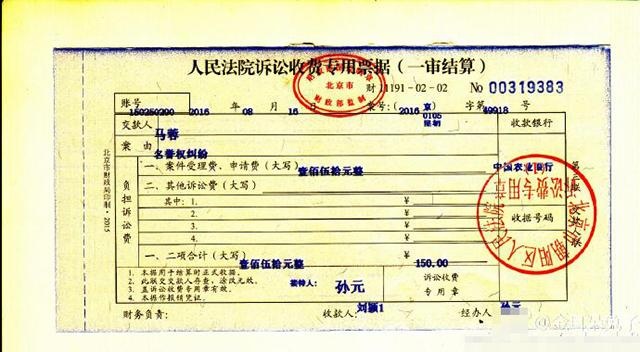 人民法院诉讼收费专用票据（一审结算）
北京市
财政部监制
财 J1191-02-02 No 00319383
账号 150250200 2016 年 08 月 16 日 案号：(2016) 京0105民初 字第49918 号
交款人 马蓉 收款银行
案由 名誉权纠纷
负担诉讼费
一、案件受理费、申请费（大写）壹佰伍拾元整 中国农业银行
二、其他诉讼费（大写） ¥
其中：1 ¥
2 ¥
3 ¥
4 ¥
收据号码
一、二项合计（大写）壹佰伍拾元整 ¥ 150.00
1．本据用于结算的正式收据。
2．此联交交款人存查，涂改无效。
3．盖诉讼费专用章有效。
4．本据作报销凭证。
接转人：孙元
诉讼收费
专用章
财务负责： 收款人：刘颖1 经办人： 孙元
北京市财政局印制·2015
北京市朝阳区人民法院
诉讼费专用章